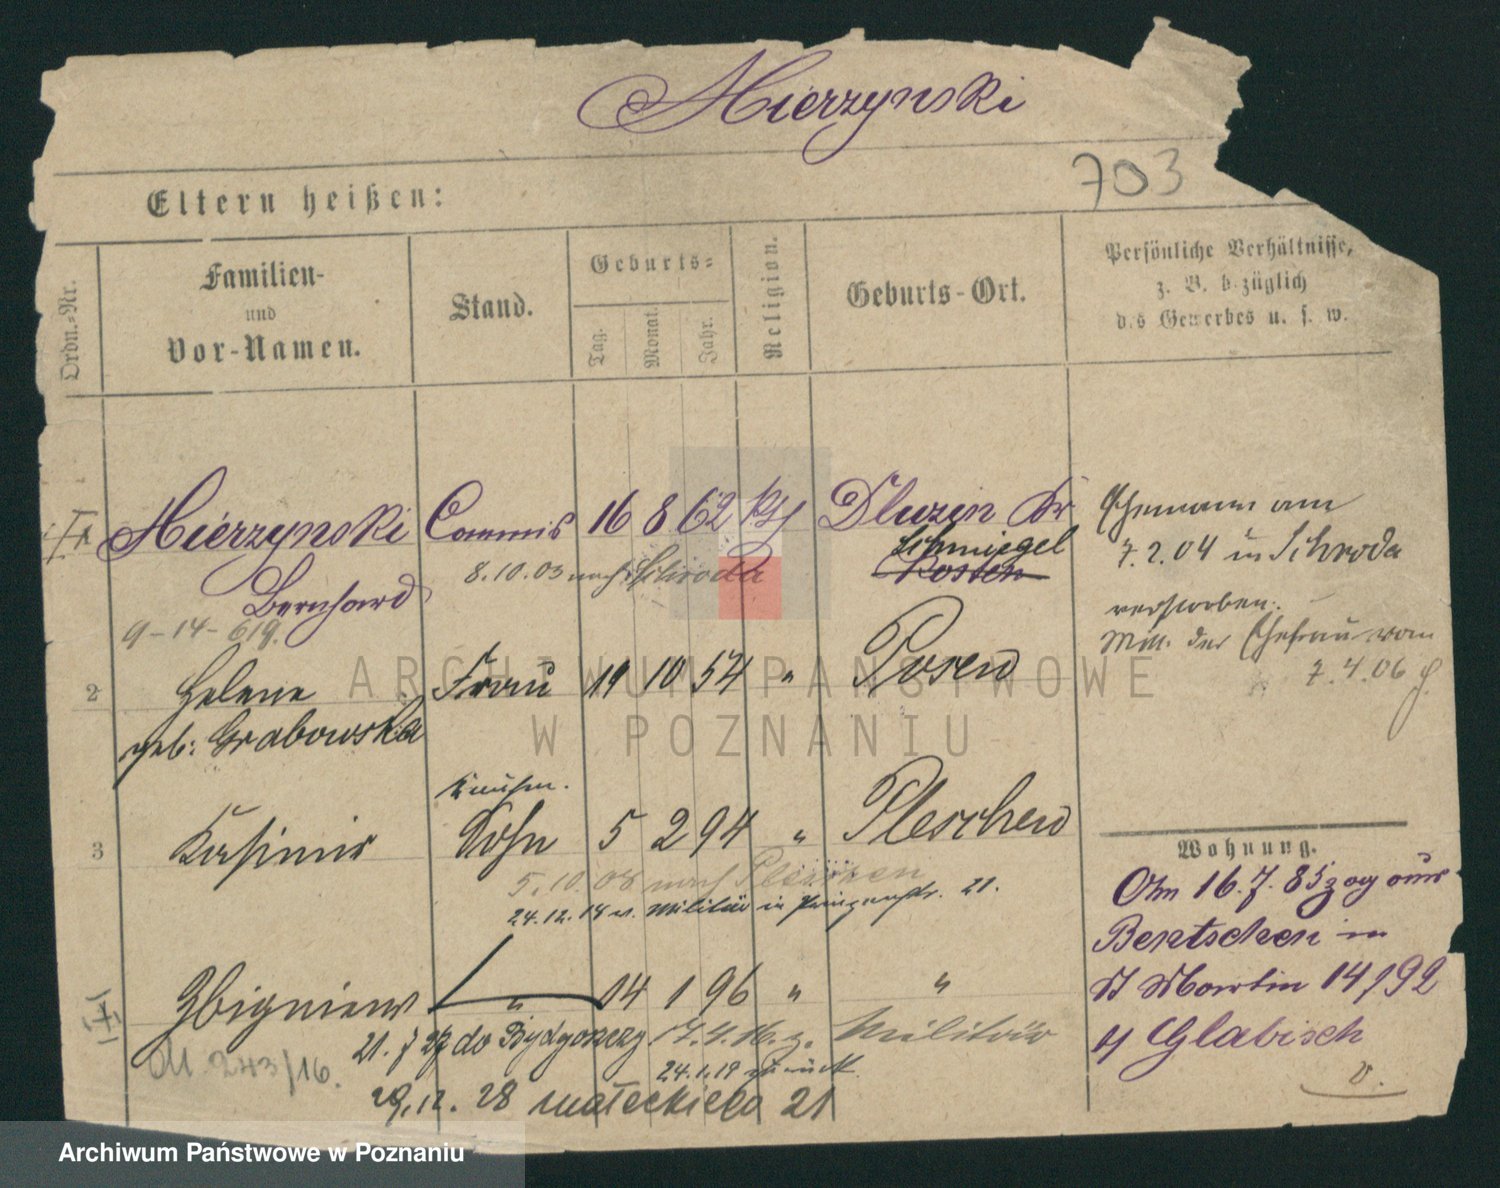 Hierzynski
703
Eltern heißen:
Ordn.-Nr.
Familien-
und
Vor-Namen.
Stand.
Geburts-
Tag.
Monat.
Jahr.
Religion.
Geburts-Ort.
Persönliche Verhältnisse,
z. B. bezüglich
des Gewerbes u. s. w.
Hierzynski Commis 16 8 62 kth Dluzin Kr
Schmiegel
Kosten
Bernhard
8.10.03 nach Schroda
9-14-619.
Ehemann am
7.2.04 in Schroda
verstorben.
Mitt. der Ehefrau vom
7.4.06
2 Helene Frau 19 10 54 " Posen
geb: Grabowska
3 Kasimir Sohn 5 2 94 " Pleschen
5.10.08 nach Pleschen
24.12.14 v. Militär in Prinzenstr. 21.
Zbigniew " 14 1 96 " "
21.7 27 do Bydgoszczy 17.4.16. z. Militär
24.1.19 zurück
M. 243/16.
29.12.28 małeckiego 21
Wohnung.
Am 16.7.85 zog aus
Bentschen in
St Martin 14/92
Glabisch
v.
ARCHIWUM PAŃSTWOWE
W POZNANIU
Archiwum Państwowe w Poznaniu